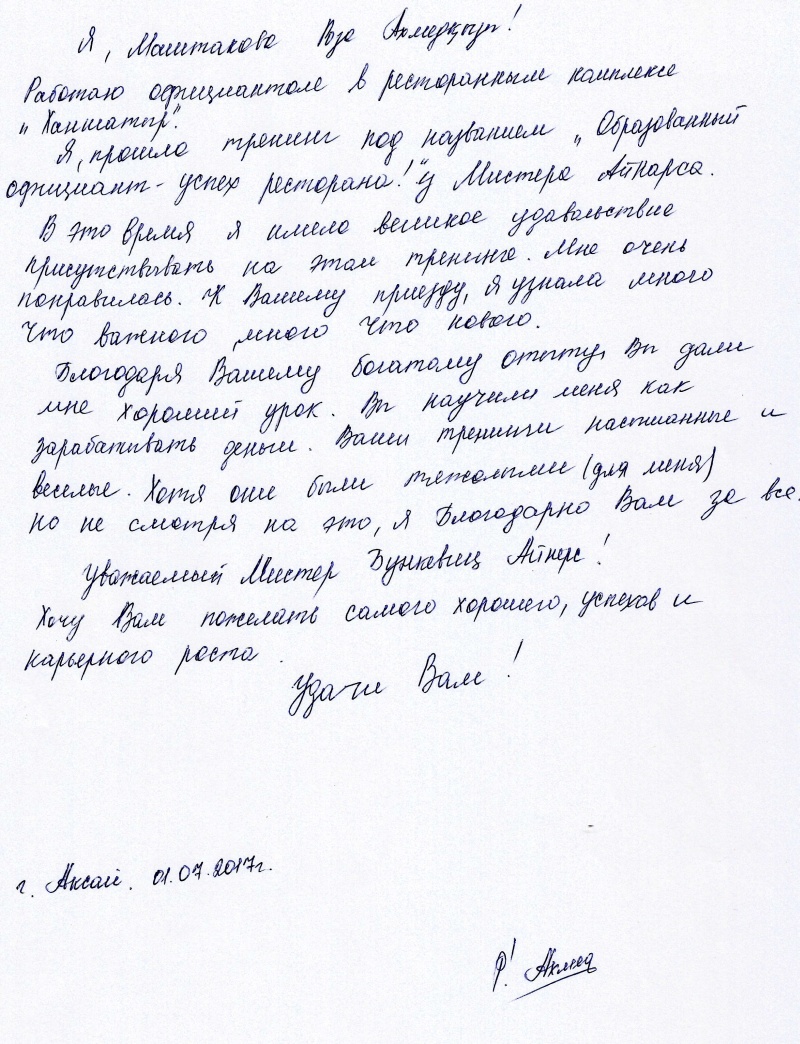 Я, Маштакова Роза Ахмедқызы!
Работаю официантом в ресторанным камплексе
„Ханшатыр".
Я, прошла тренинг под названием „Образованный
официант - успех ресторана!" у Мистера Айнарса.
В это время я имела великое удавальствие
присутствывать на этом тренинге. Мне очень
понравилась. К Вашему приезду, я узнала много
что важного, много что нового.
Благодаря Вашему богатому опыту, Вы дали
мне хороший урок. Вы научили меня как
зарабатывать деньги. Ваши тренинги
и
веселые. Хотя они были тяжолыми (для меня)
но не смотря на это, я Благодарна Вам за все.
Уважаемый Мистер Айнерс!
Хочу Вам пожелать самого хорошего, успехов и
карьерного роста.
Удачи Вам!
г. Аксай. 01.07.2017г.
Р! Ахмед